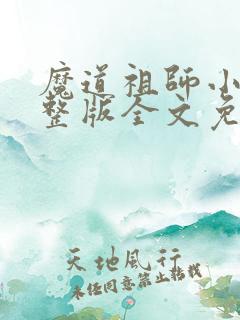 魔道祖師小
整版全文免
天地風行
未經同意禁止轉載